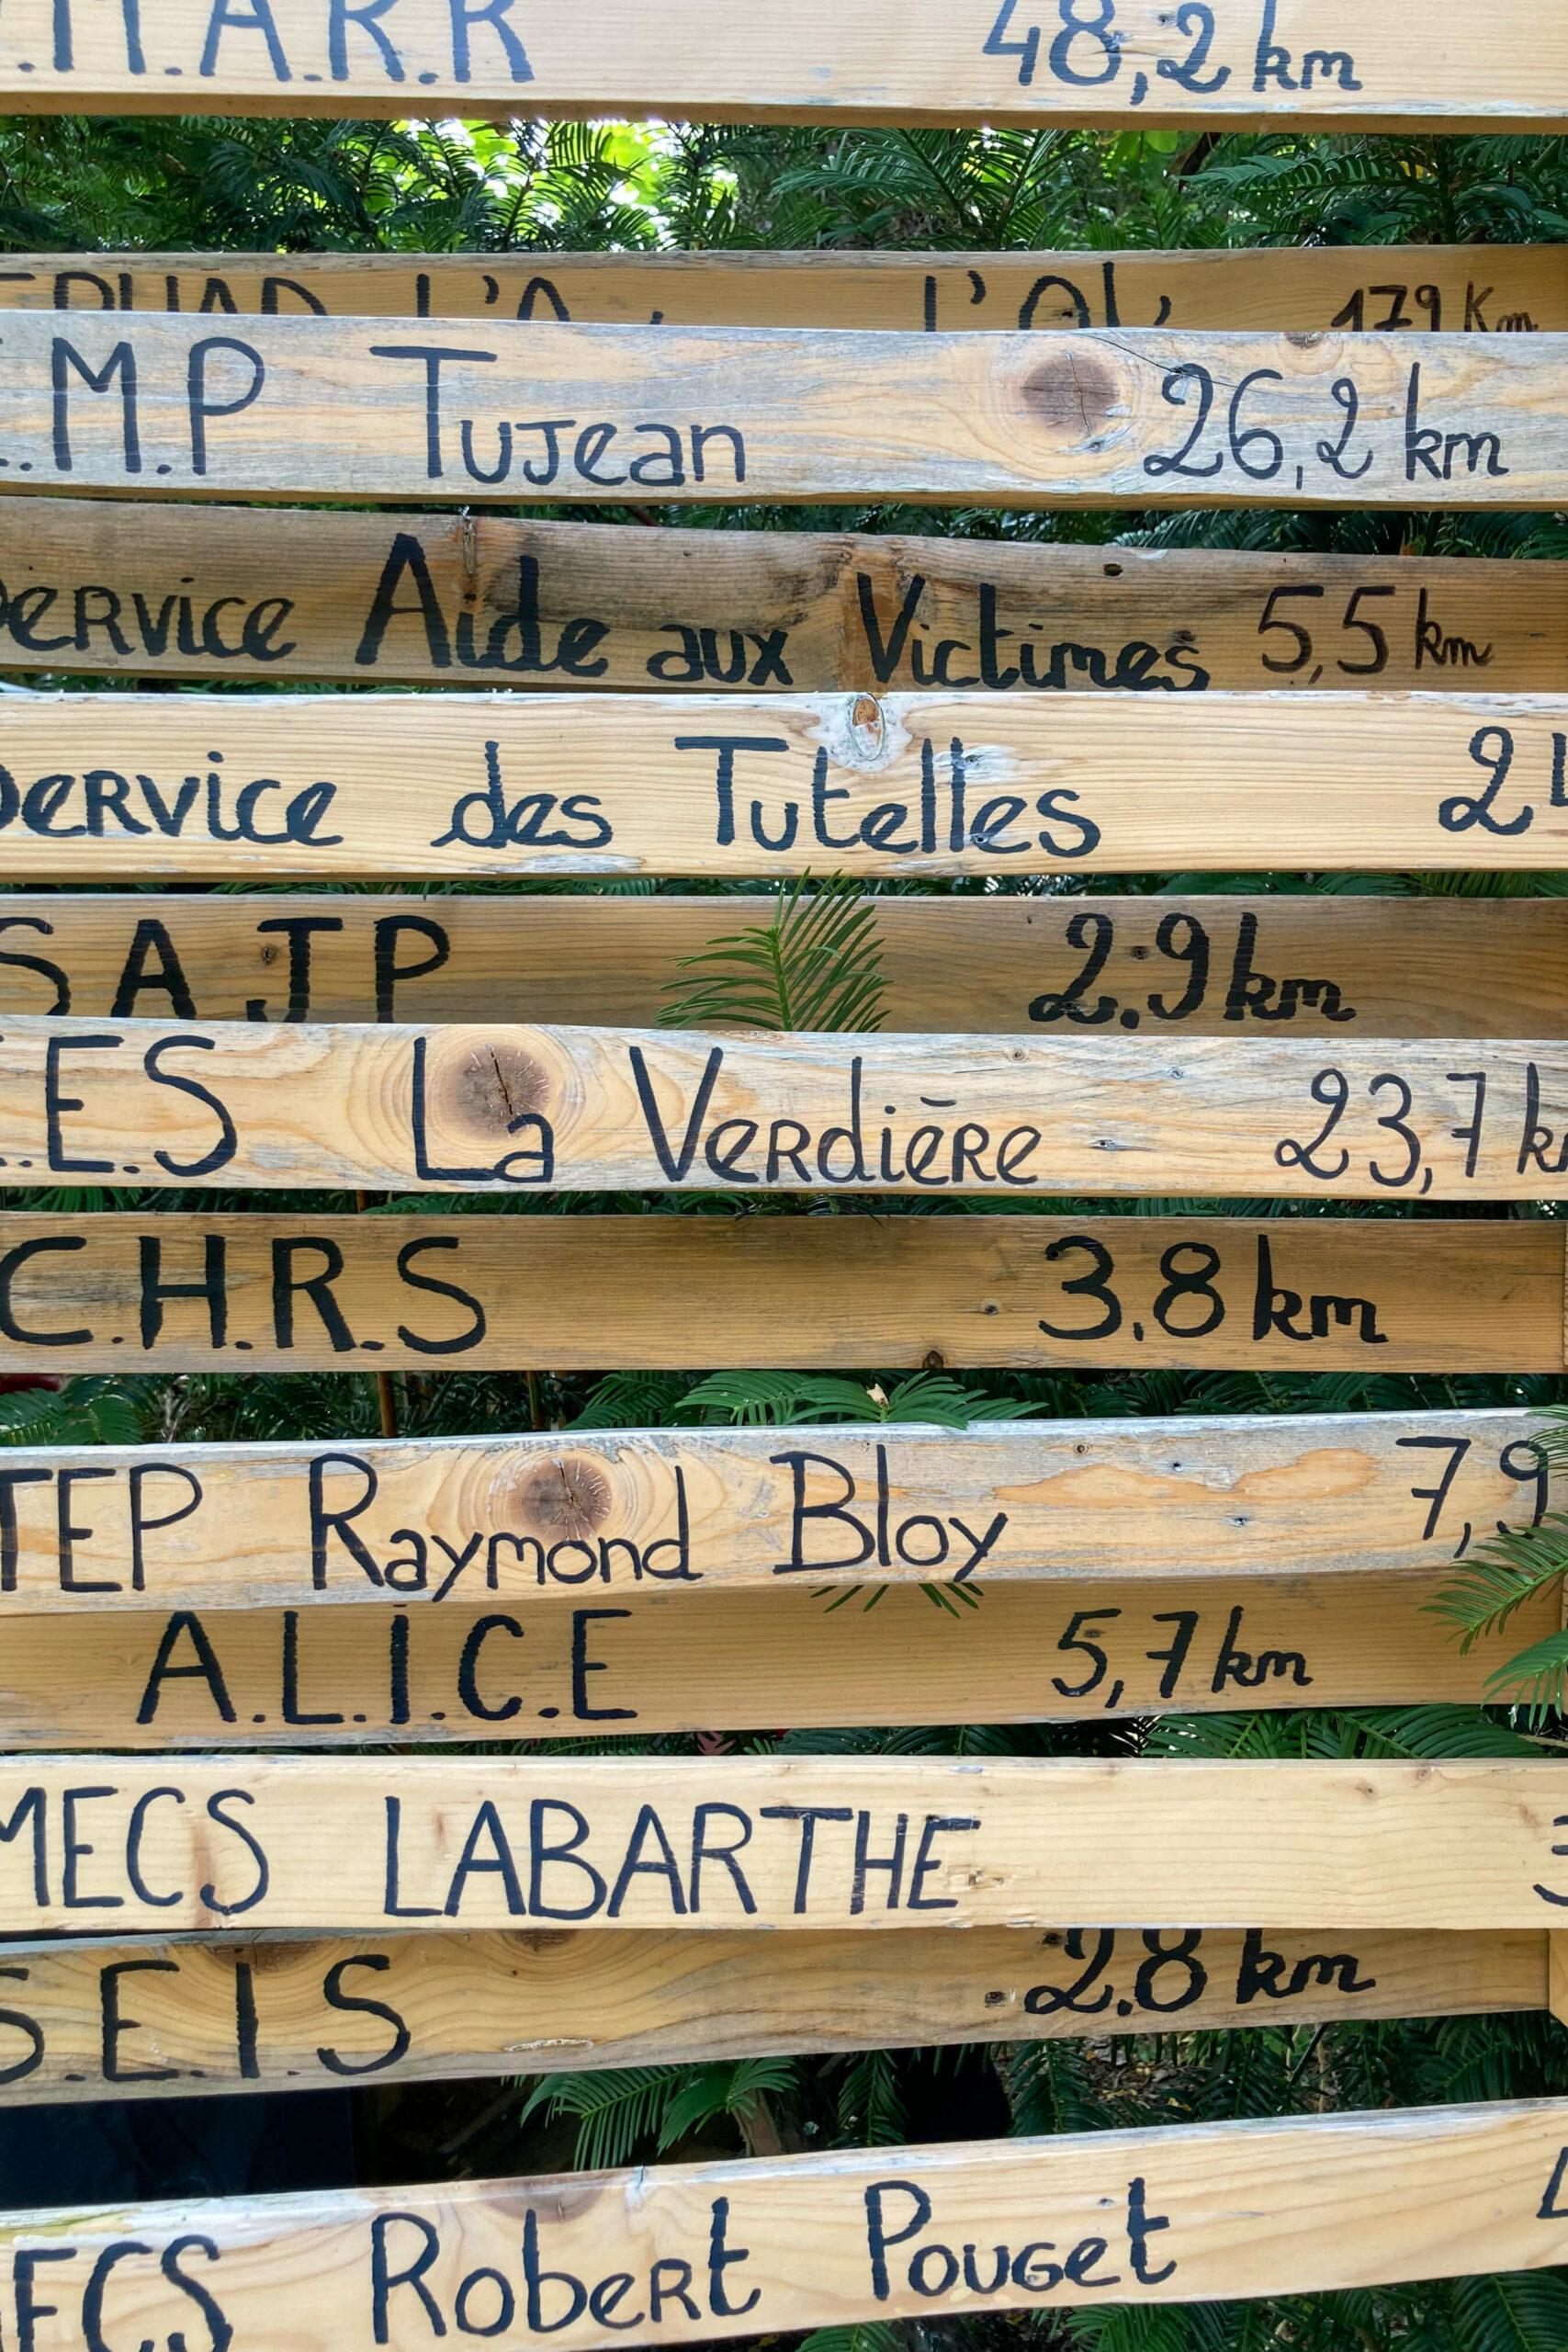 .M.A.R.R 48,2 km
179 Km
.M.P Tujean 26,2 km
Service Aide aux Victimes 5,5 km
Service des Tutelles
SAJP 2,9 km
.E.S La Verdière 23,7 k
C.H.R.S 3,8 km
TEP Raymond Bloy 7,9
A.L.I.C.E 5,7 km
MECS LABARTHE
S.E.I.S 2,8 km
MECS Robert Pouget